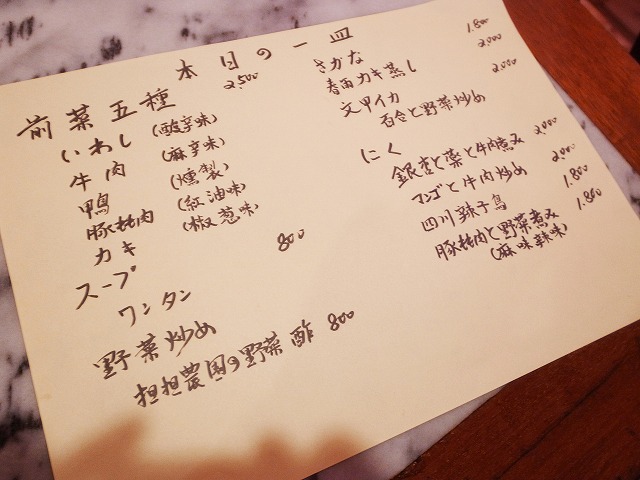 本日の一皿
前菜五種 2,500
いわし (酸辛味)
牛肉 (麻辛味)
鴨 (燻製)
豚耳肉 (紅油味)
カキ (椒葱味)
スープ 800
ワンタン
野菜炒め
担担農園の野菜 酢 800
さかな
香西カキ蒸し 1.800
文甲イカ 2000
百合と野菜炒め 2000
にく
銀杏と薬と牛肉煮み 2,000
マンゴと牛肉炒め 2,000
四川辣子鳥 1.800
豚耳肉と野菜煮み 1.800
(麻味辣味)